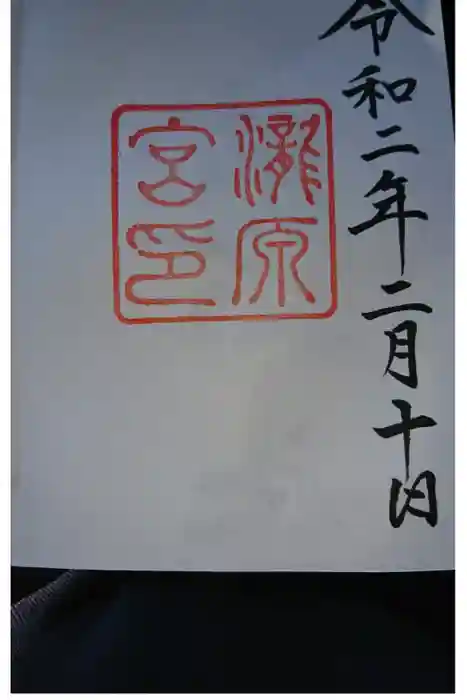 令和二年二月十日
瀧原
宮印